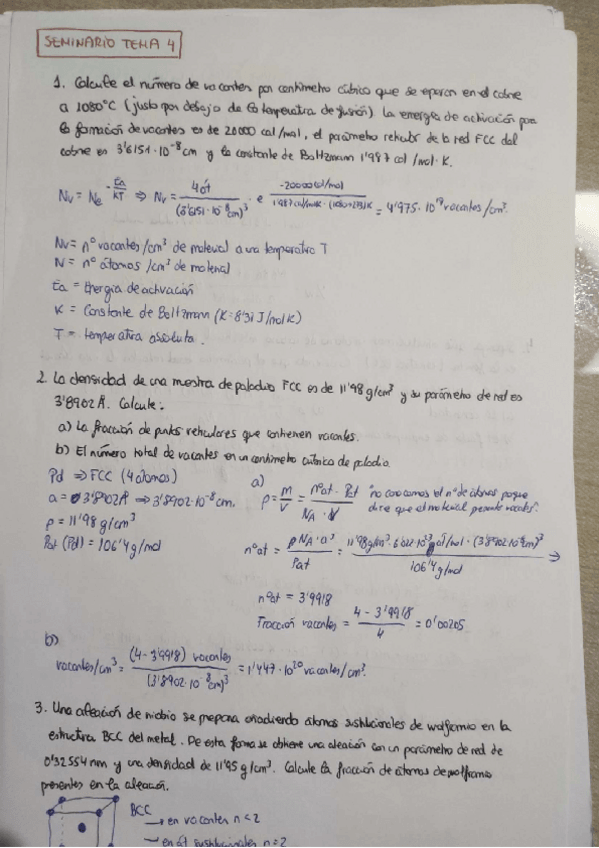 SEMINARIO TEMA 4
1. Calcule el número de vacantes por centímetro cúbico que se esperan en el cobre
a 1080°C (justo por debajo de la temperatura de fusión) La energía de activación para
la formación de vacantes es de 20000 cal/mol, el parámetro reticular de la red FCC del
cobre es 3'6151·10⁻⁸ cm y la constante de Boltzmann 1'987 cal/mol·K.
Nv = N e^(-Ea/KT) ⇒ Nv = 4 át/(3'6151·10⁻⁸ cm)³ · e^(-20000 cal/mol / 1'987 cal/molK·(1080+273)K) = 4'975·10¹⁹ vacantes/cm³.
Nv = nº vacantes/cm³ de material a una temperatura T
N = nº átomos/cm³ de material
Ea = Energía de activación
K = Constante de Boltzmann (K=8'31 J/mol K)
T = temperatura absoluta.
2. La densidad de una muestra de paladio FCC es de 11'98 g/cm³ y su parámetro de red es
3'8902 Å. Calcule:
a) La fracción de puntos reticulares que contienen vacantes.
b) El número total de vacantes en un centímetro cúbico de paladio.
Pd ⇒ FCC (4 átomos)
a = 3'8902Å ⇒ 3'8902·10⁻⁸ cm.
ρ = 11'98 g/cm³
Pat (Pd) = 106'4 g/mol
a)
ρ = m/V = nºat · Pat / NA · V "no conocemos el nº de átomos porque
dice que el material presenta vacantes".
nºat = ρ NA · a³ / Pat = 11'98 g/cm³ · 6'022·10²³ at/mol · (3'8902·10⁻⁸ cm)³ / 106'4 g/mol →
nºat = 3'9918
Fracción vacantes = 4 - 3'9918 / 4 = 0'00205
b)
vacantes/cm³ = (4-3'9918) vacantes / (3'8902·10⁻⁸ cm)³ = 1'447·10²⁰ vacantes/cm³.
3. Una aleación de niobio se prepara añadiendo átomos sustitucionales de wolframio en la
estructura BCC del metal. De esta forma se obtiene una aleación con un parámetro de red de
0'32554 nm y una densidad de 11'95 g/cm³. Calcule la fracción de átomos de wolframio
presentes en la aleación.
BCC
→ en vacantes n<2
→ en át sustitucionales n=2